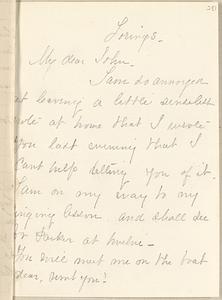 Loring's.
My dear John.
I am so annoyed
at leaving a little senseless
note at home that I wrote
you last evening that I
can't help telling you of it.
I am on my way to my
singing lesson and shall see
Parker at twelve -
You will meet me on the boat
dear, won't you?